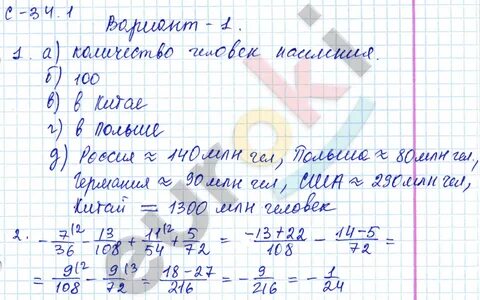 С-34.1
Вариант-1.
1. а) количество человек населения.
б) 100
в) в Китае
г) в Польше
д) Россия ≈ 140 млн чел, Польша ≈ 80 млн чел,
Германия ≈ 90 млн чел, США ≈ 290 млн чел,
Китай = 1300 млн человек
2. -7/36^(2 - 13/108 + 11/54^(2 + 5/72 = (-13+22)/108 - (14-5)/72 =
= 9/108^(2 - 9/72^(3 = (18-27)/216 = -9/216 = -1/24
euroki